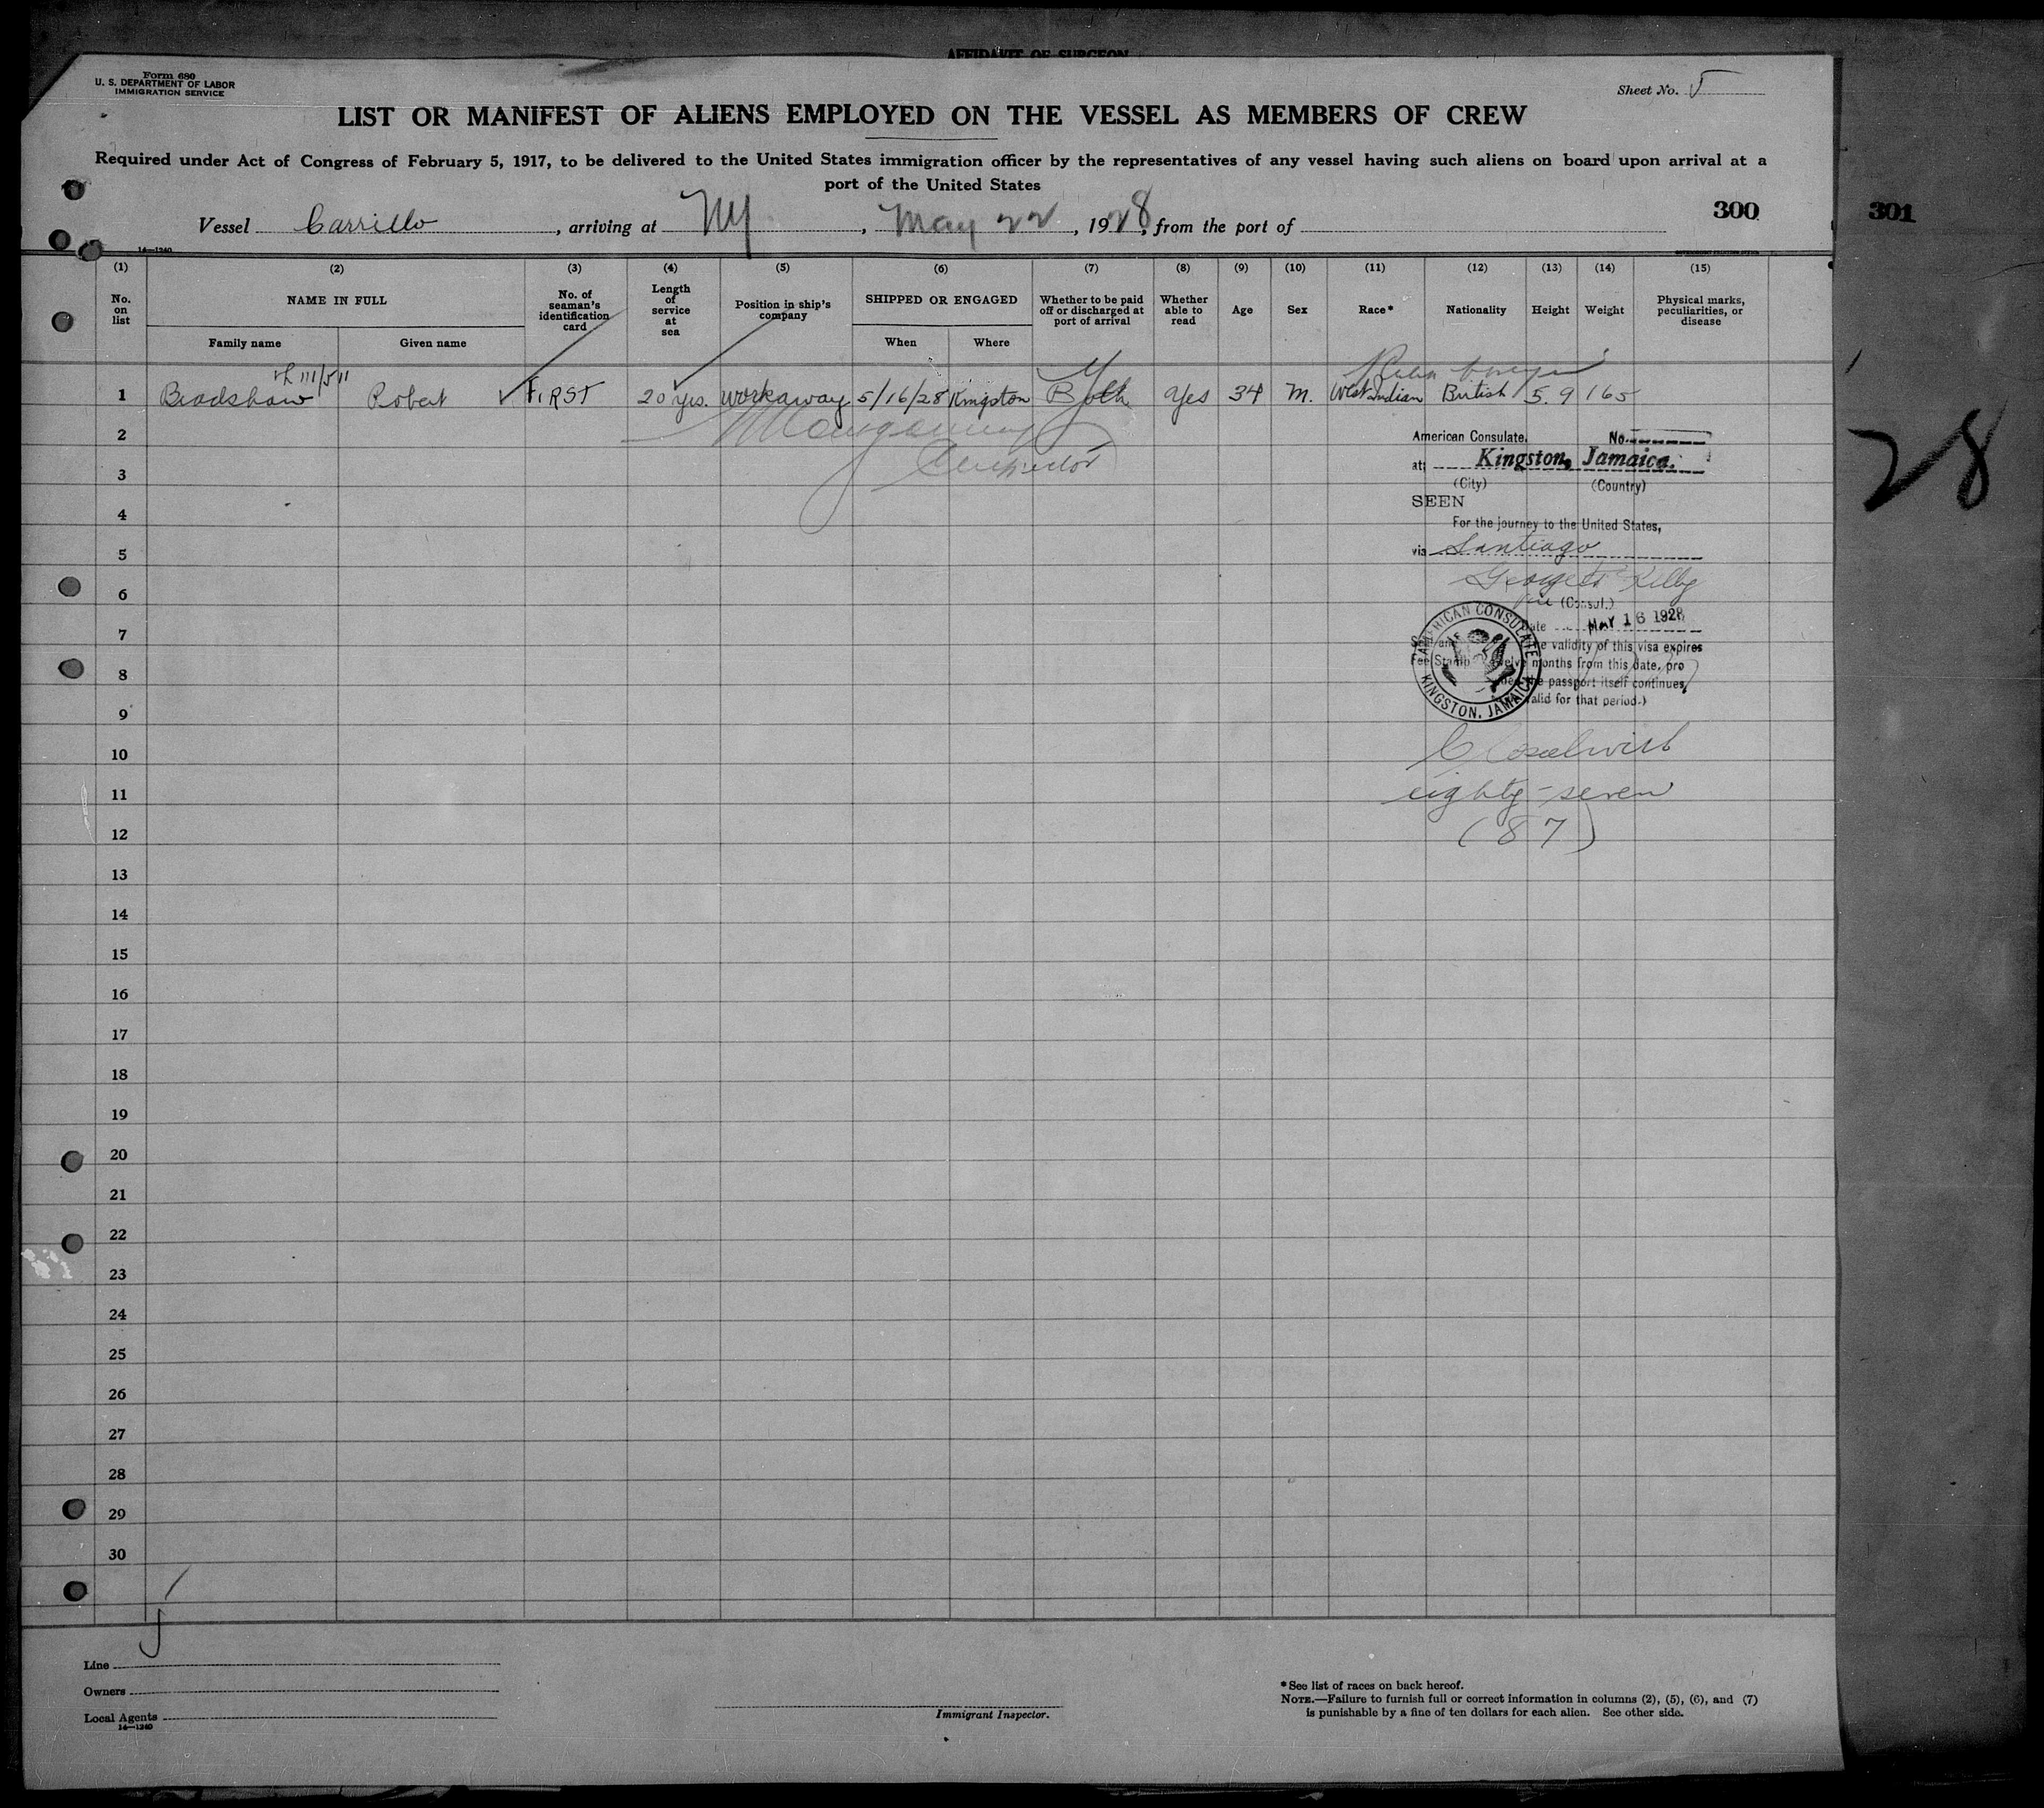 AFFIDAVIT OF SURGEON
Form 680
U. S. DEPARTMENT OF LABOR
IMMIGRATION SERVICE
Sheet No. 5
LIST OR MANIFEST OF ALIENS EMPLOYED ON THE VESSEL AS MEMBERS OF CREW
Required under Act of Congress of February 5, 1917, to be delivered to the United States immigration officer by the representatives of any vessel having such aliens on board upon arrival at a
port of the United States
300 301
Vessel Carrillo, arriving at NY, May 22, 1928, from the port of
14—1240
GOVERNMENT PRINTING OFFICE
(1) (2) (3) (4) (5) (6) (7) (8) (9) (10) (11) (12) (13) (14) (15)
No. on list
NAME IN FULL
Family name Given name
No. of seaman's identification card
Length of service at sea
Position in ship's company
SHIPPED OR ENGAGED
When Where
Whether to be paid off or discharged at port of arrival
Whether able to read
Age
Sex
Race*
Nationality
Height
Weight
Physical marks, peculiarities, or disease
1 Bradshaw Robert FIRST 20 yrs. workaway 5/16/28 Kingston Yes 34 M. West Indian British 5.9 165
2
Inspector
3
4
5
6
7
8
9
10
11
12
13
14
15
16
17
18
19
20
21
22
23
24
25
26
27
28
29
30
American Consulate. No.
at Kingston, Jamaica.
(City) (Country)
SEEN
For the journey to the United States,
via Santiago
(Consul.)
Date MAY 16 1928
AMERICAN CONSULATE
KINGSTON, JAMAICA
The validity of this visa expires
Fee Stamp twelve months from this date, pro
the passport itself continues
valid for that period.)
eighty-seven
(87)
28
Line
Owners
Local Agents
14—1240
Immigrant Inspector.
*See list of races on back hereof.
NOTE.—Failure to furnish full or correct information in columns (2), (5), (6), and (7)
is punishable by a fine of ten dollars for each alien. See other side.